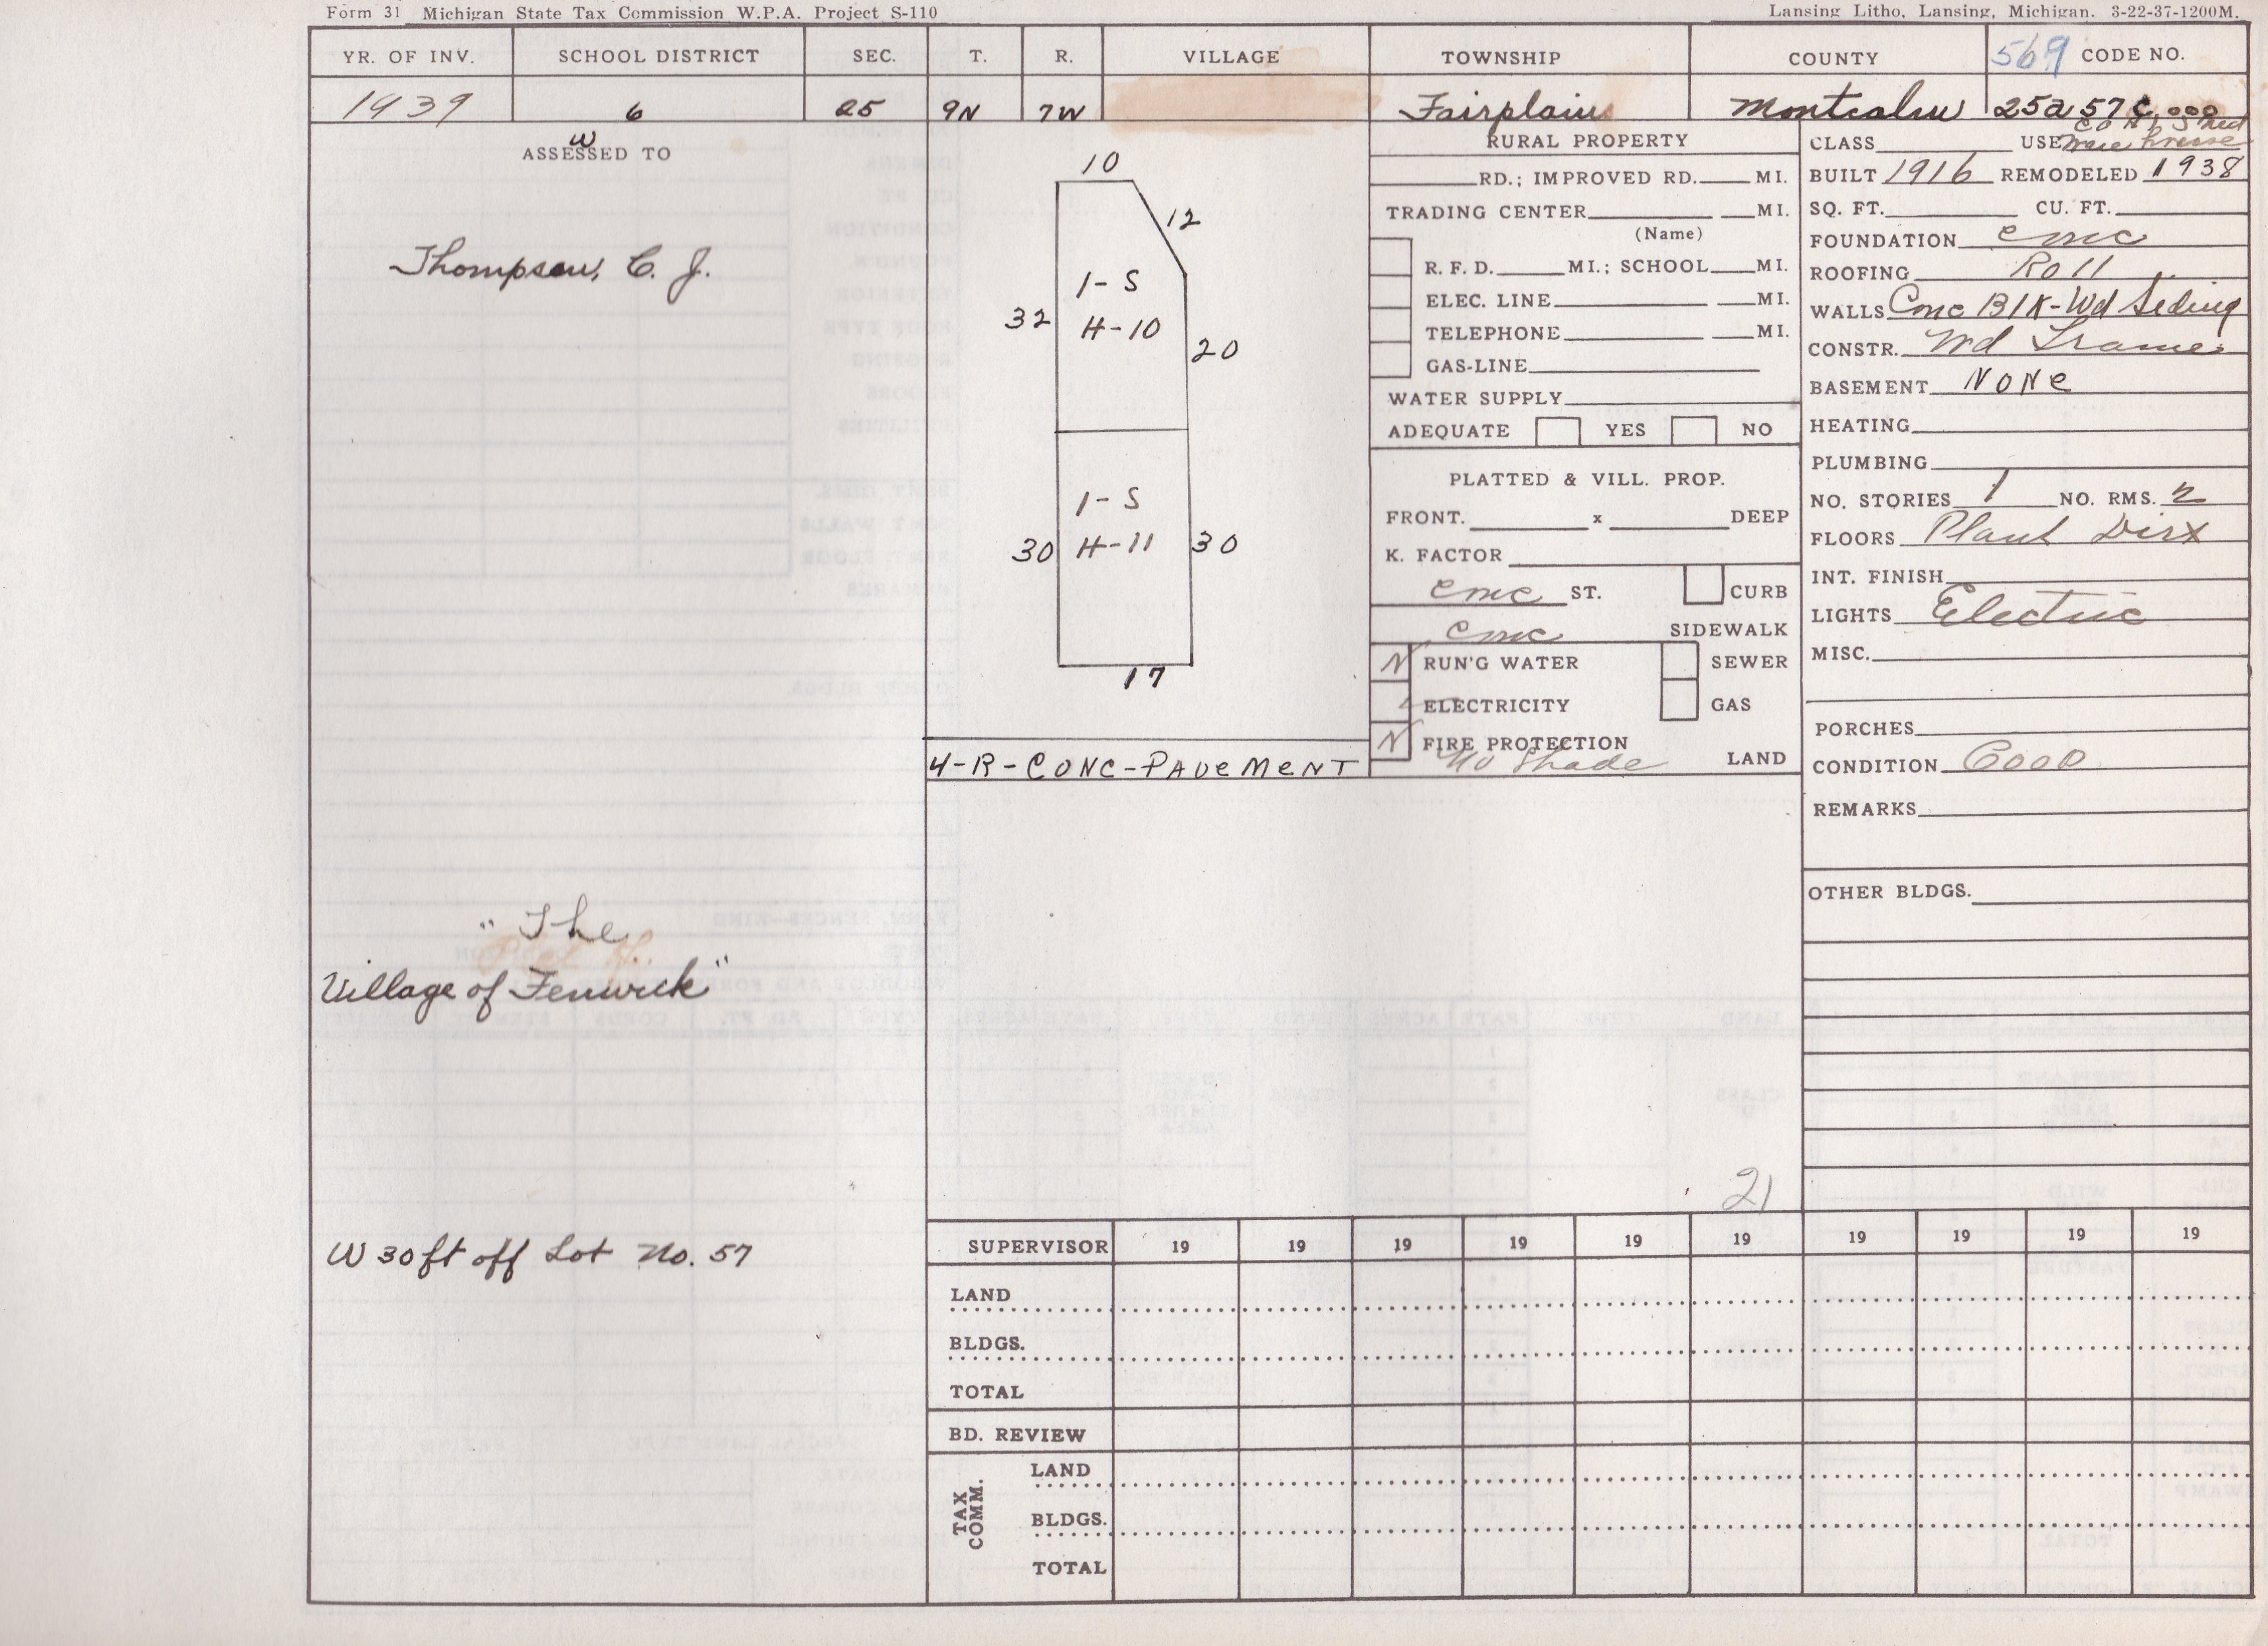 Form 31 Michigan State Tax Commission W.P.A. Project S-110
Lansing Litho, Lansing, Michigan. 3-22-37-1200M.
YR. OF INV. SCHOOL DISTRICT SEC. T. R. VILLAGE TOWNSHIP COUNTY 569 CODE NO.
1939 6 25 9N 7W Fairplains Montcalm 25a 57 C.000
W
ASSESSED TO
Thompson, C. J.
"The
Village of Fenwick"
W 30 ft off Lot No. 57
10
12
1-S
H-10
32
20
1-S
H-11
30
30
17
4-R-CONC-PAVEMENT
RURAL PROPERTY
RD.; IMPROVED RD. MI.
TRADING CENTER MI.
(Name)
R. F. D. MI.; SCHOOL MI.
ELEC. LINE MI.
TELEPHONE MI.
GAS-LINE
WATER SUPPLY
ADEQUATE YES NO
PLATTED & VILL. PROP.
FRONT. x DEEP
K. FACTOR
Conc ST. CURB
Conc SIDEWALK
N RUN'G WATER SEWER
ELECTRICITY GAS
N FIRE PROTECTION
No Shade LAND
Shed
CLASS USE Ware house
BUILT 1916 REMODELED 1938
SQ. FT. CU. FT.
FOUNDATION Conc
ROOFING Roll
WALLS Conc Blk-Wd Siding
CONSTR. Wd Frame
BASEMENT NONE
HEATING
PLUMBING
NO. STORIES 1 NO. RMS. 2
FLOORS Plank Dirt
INT. FINISH
LIGHTS Electric
MISC.
PORCHES
CONDITION Good
REMARKS
OTHER BLDGS.
21
SUPERVISOR 19 19 19 19 19 19 19 19 19 19
LAND
BLDGS.
TOTAL
BD. REVIEW
TAX COMM.
LAND
BLDGS.
TOTAL